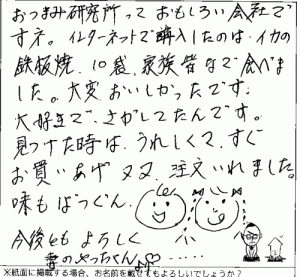 おつまみ研究所って おもしろい会社で
すネ。インターネットで購入したのは、イカの
鉄板焼、10袋、家族皆なで食べま
した。大変、おいしかったです。
大好きで、さがしてたんです。
見つけた時は、うれしくて、すぐ
お買いあげ 又々、注文いれました。
味もばつぐん。
今後とも よろしく
妻のやっちくん ……
※紙面に掲載する場合、お名前を載せてもよろしいでしょうか？